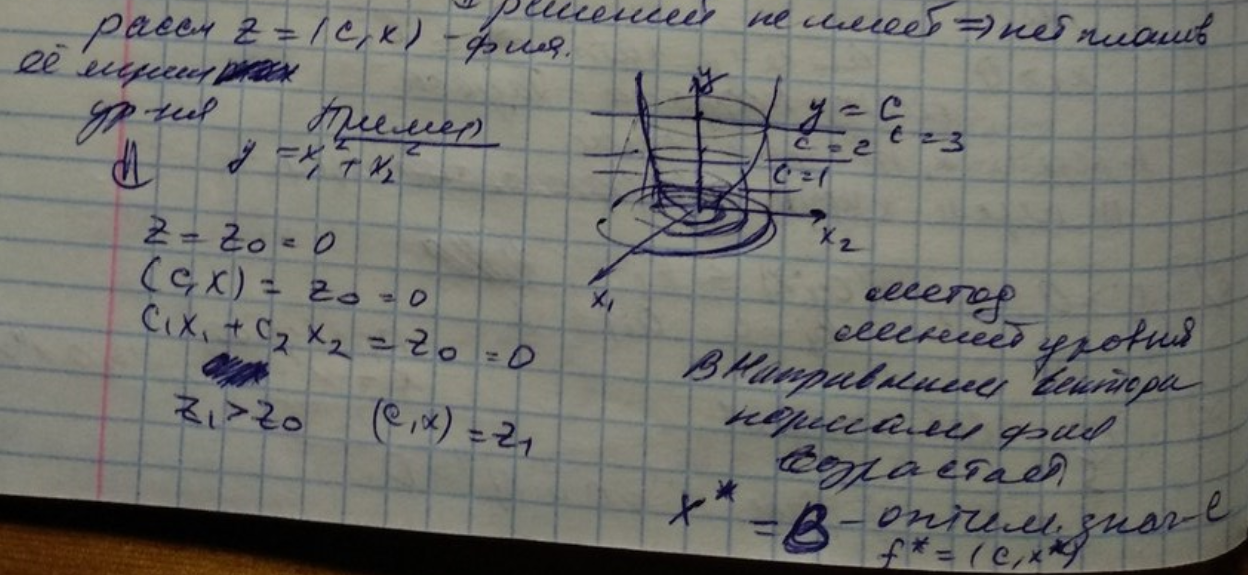 решений не имеет ⇒ нет планов
рассм z = (c, x) - ф-ия.
её линии
ур-ня
Пример
1) y = x₁² + x₂²
y
y = C
c = 3
c = 2
c = 1
x₂
x₁
z = z₀ = 0
(c, x) = z₀ = 0
c₁x₁ + c₂x₂ = z₀ = 0
z₁ > z₀ (c, x) = z₁
метод
линий уровня
В направлении вектора
нормали ф-ия
возрастает
x* = B - оптим. знач-е
f* = (c, x*)